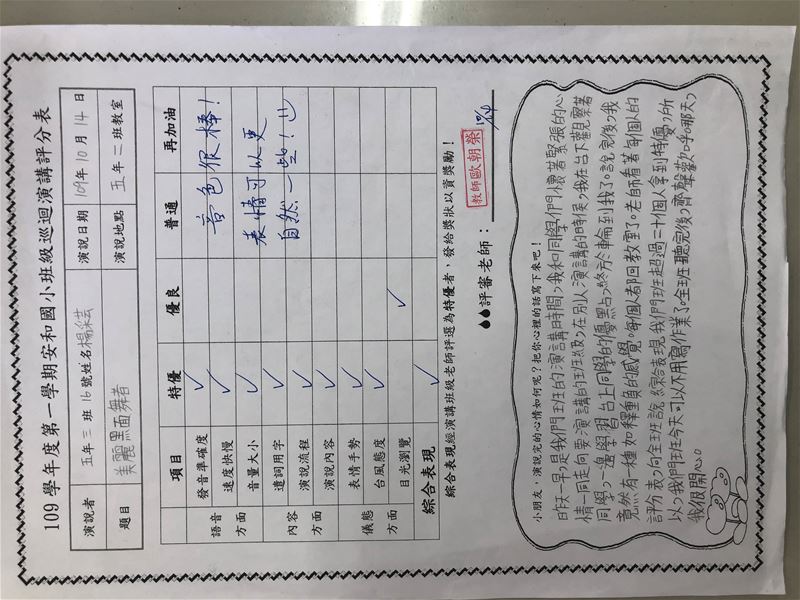 109 學年度第一學期安和國小班級巡迴演講評分表
演說者 五年三班16號姓名楊采芸 演說日期 109年10月14日
題目 美麗黑面舞者 演說地點 五年二班教室
項目 特優 優良 普通 再加油
語音方面 發音準確度 ✓
速度快慢 ✓
音量大小 ✓
內容方面 遣詞用字 ✓
演說流程 ✓
演說內容 ✓
儀態方面 表情手勢 ✓
台風態度 ✓
目光瀏覽 ✓
綜合表現 ✓
音色很棒!
表情可以更
自然一些!
綜合表現經演講班級老師評選為特優者,發給獎狀以資獎勵!
評審老師:
教師歐朝榮
10/14
小朋友,演說完的心情如何呢?把你心裡的話寫下來吧!
昨天早上是我們班的演講時間,我和同學們懷著緊張的心
情一同走向要演講的班級,在別人演講的時侯,我在台下觀察著
同學,一邊學習台上同學的優點,終於輪到我了。說完後,我
竟然有一種如釋重負的感覺。每個人都回教室了。老師看著每個人的
評分表,向全班說:綜合表現我們班超過二十個人拿到特優,所
以,我們班今天可以不用寫作業了。全班聽完後,齊聲歡呼。那天,
我很開心。